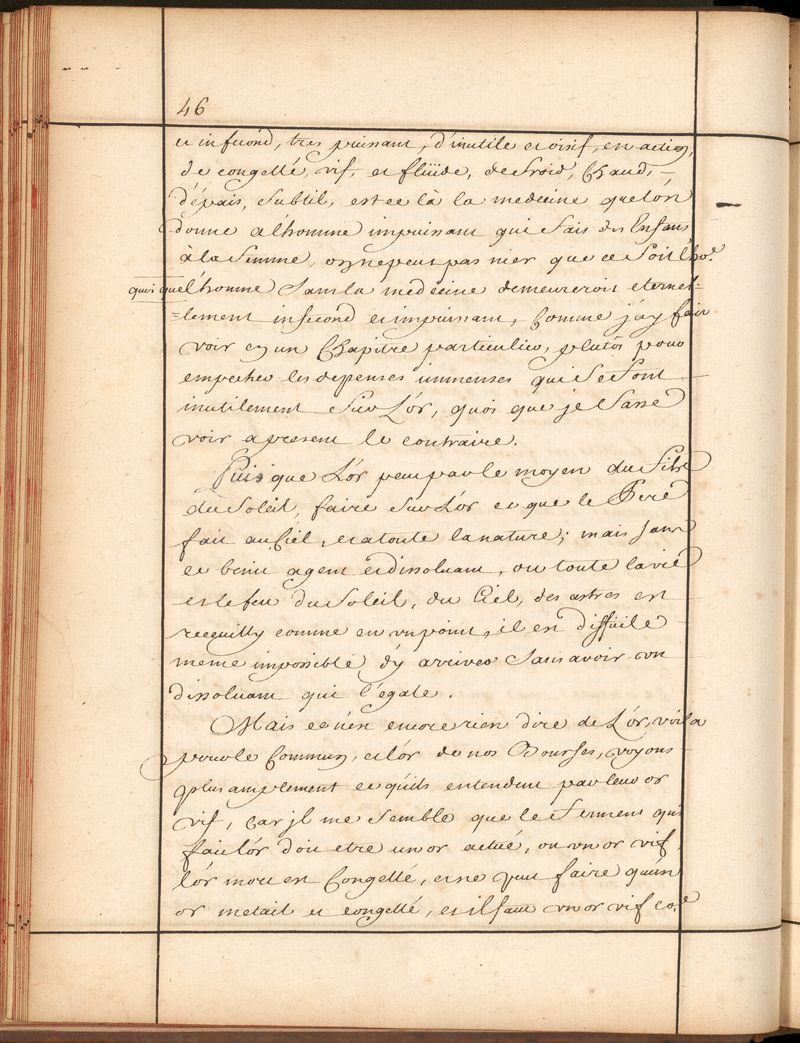 46
et infecond, tres puissant, d'inutile et oisif, en action,
de congellé, vif, et fluide, de froid, Chaud,
d'épais, subtil, est ce là la medecine que lón
donne a lhomme impuissant qui fais des Enfans
à la femme, on ne peut pas nier que ce soit lho.e
quoi que lhomme sans la medecine demeureroit eternel=
=lement infecond et impuissant, Comme j'ay fait
voir en un Chapitre particulier, plutôs pour
empecher les depenses immenses qui se font
inutilement sur L'or, quoi que je fasse
voir a present le contraire.
Puis que L'or peut par le moyen du fils
du Soleil, faire sur L'or ce que le Pere
fait au Ciel, et a toute la nature; mais sans
ce benin agent et dissoluant, ou toute la vie
et le feu du Soleil, du Ciel, des astres est
receuilly comme en un point, il est difficile
meme impossible d'y arriver sans avoir un
dissoluant qui l'égale.
Mais ce n'est encore rien dire de L'or, voila
pour le Commun, et lór de nos Bourses, voyons
plus amplement ce qu'ils entendent par leur or
vif, car jl me semble que le ferment qui
fait lór doit etre un or actué, ou un or vif
lór mort est Congellé, et ne peut faire qu'un
or metail et congellé, et il faut un or vif co.e